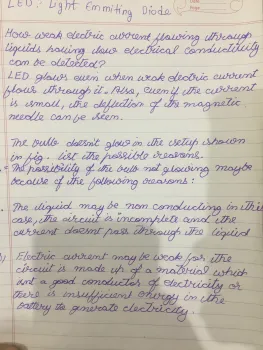 LED: Light Emmiting Diode
How weak electric current flowing through
liquids having low electrical conductivity
can be detected?
LED glows even when weak electric current
flows through it. Also, even if the current
is small, the deflection of the magnetic
needle can be seen.
The bulb doesn't glow in the setup shown
in fig. list the possible reasons.
The possibility of the bulb not glowing maybe
because of the following reasons:
The liquid may be non conducting in this
case, the circuit is incomplete and the
current doesnt pass through the liquid
Electric current may be weak for the
circuit is made up of a material which
isnt a good conductor of electricity or
there is insufficient energy in the
battery to generate electricity.